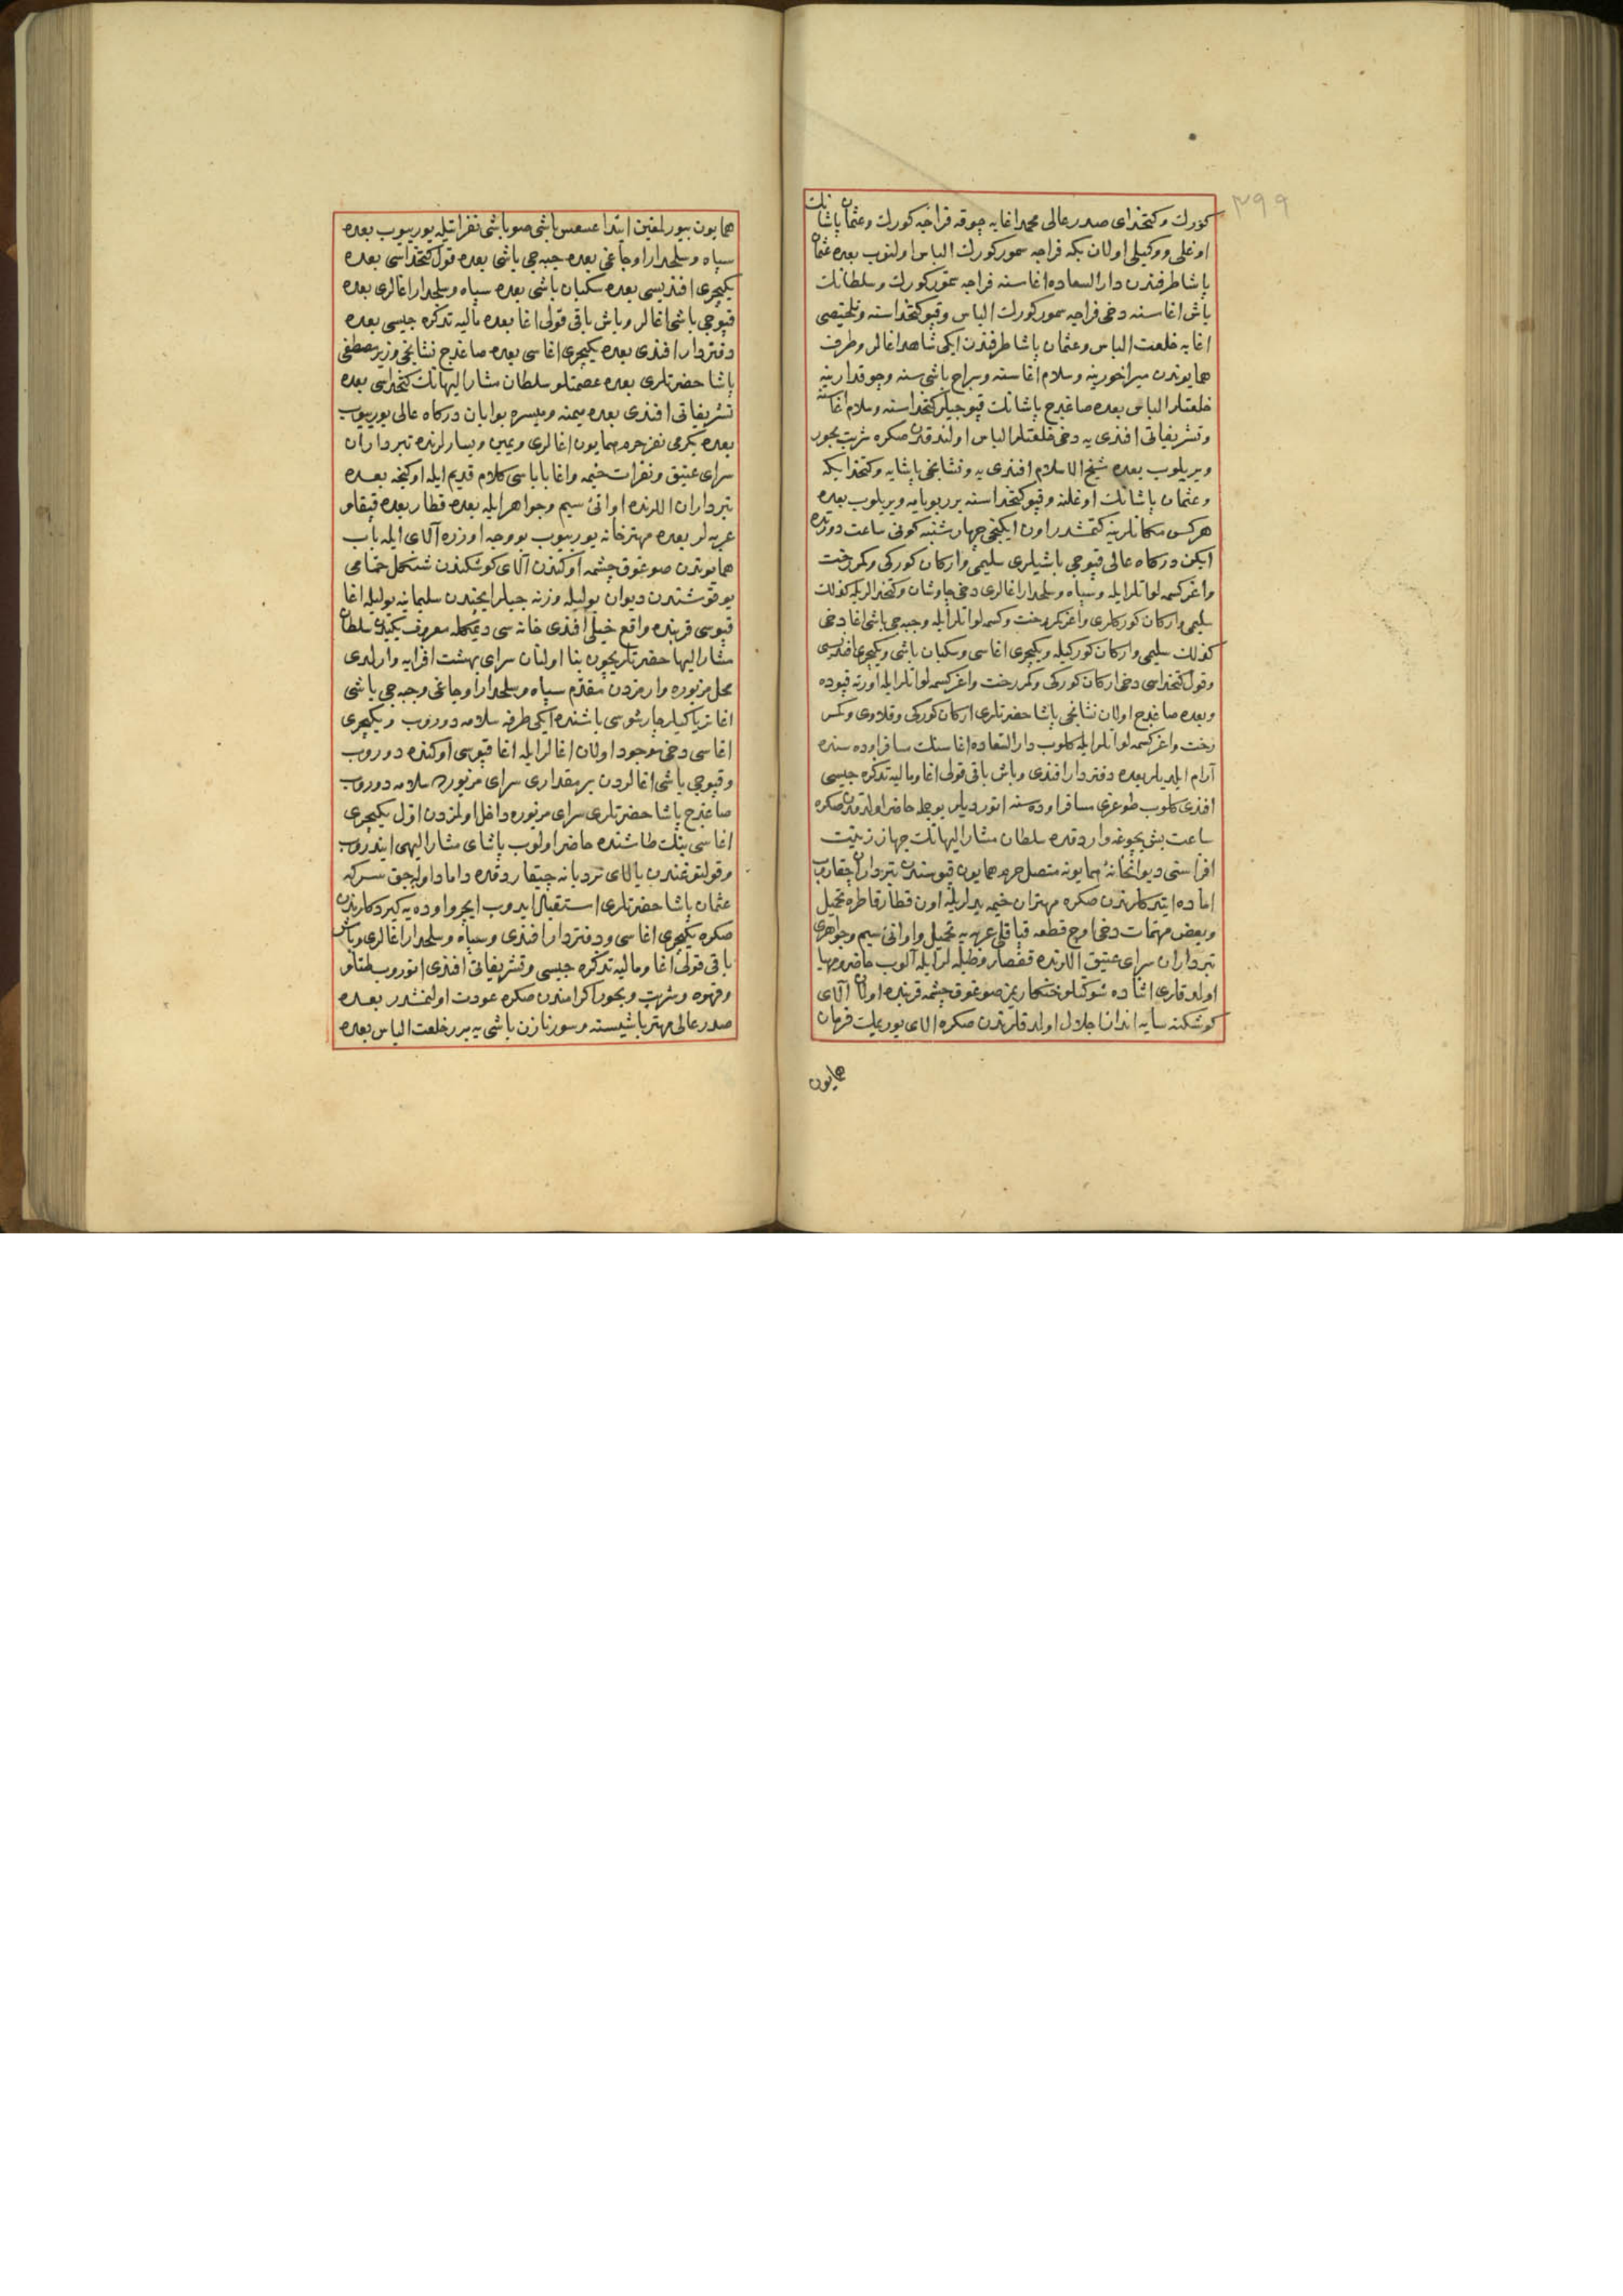 ۳۹۹
كورك وكتخداى صدر عالى محمد اغايه چوقه فراجه كورك وعثمان پاشانك
اوغلى ووكيلى اولان بكه فراجه سمور كورك الباس اولنوب بعده عثمان
پاشا طرفندن دار السعاده اغاسنه فراجه سمور كورك وسلطانك
باش اغاسنه دخى فراجه سمور كورك الباس وقپو كتخداسنه وتلخيصى
اغايه خلعت الباس وعثمان پاشا طرفندن ايكى شاهد اغالر وطرف
همايوندن ميراخورينه وسلام اغاسنه وسراج باشىسنه وچوقدارينه
خلعتلر الباس بعده صاغدج پاشانك قپوجيلر كتخداسنه وسلام اغاسنه
وتشريفاتى افندى يه دخى خلعتلر الباس اولندقدن صكره شربت بخور
ويريلوب بعده شيخ الاسلام افندى يه ونشانجى پاشايه وكتخدا بكه
وعثمان پاشانك اوغلنه وقپو كتخداسنه برر بوياما ويريلوب بعده
هركس مكانلرينه كتمشدر اون ايكنجى چهارشنبه كونى ساعت دورتده
ايكن دركاه عالى قپوجى باشيلرى سليمى واركان كوركى وكمر رخت
واغر كسمه لو اتلر ايله وسپاه وسلحدار اغالرى دخى چاوشان وكتخدالريله كذلك
سليمى واركان كوركلرى واغر كمر رخت وكسمه لو اتلر ايله وجبه جى باشى اغا دخى
كذلك سليمى واركان كوركيله ويكيچرى اغاسى وسكبان باشى ويكيچرى افنديسى
وقول كتخداسى دخى اركان كوركى وكمر رخت واغر كسمه لو اتلر ايله اورته قپوده
وبعده صاغدج اولان نشانجى پاشا حضرتلرى اركان كوركى وقلاوى وكمر
رخت واغر كسمه لو اتلر ايله كلوب دار السعاده اغاسنك مسافر اوده سنده
آرام ايلديلر بعده دفتردار افندى وباش باقى قولى اغا وماليه تذكره جيسى
افندى كلوب طوغرى مسافر اوده سنه اتورديلر بو محله حاضر اولدقدن صكره
ساعت بش بچوغه واردقده سلطان مشار اليهانك جهاز زينت
افزاسنى ديوانخانۀ همايونه متصل حرم همايون قپوسندن تبرداران چقاروب
اماده ايتدكلرندن صكره مهتران خيمه يدلريله اون قطار قاطره تحميل
وبعض مهمات دخى اوچ قطعه قپاقلى عربه يه تحميل واوانئ سيم وجواهرى
تبرداران سراى عتيق اللرنده قفصلر وطبله لر ايله آلوب حاضر ومهيا
اولدقلرى اثناده شوكتلو خنكارمز صوغوق چشمه قربنده اولان آلاى
كوشكنه سايه انداز اجلال اولدقلرندن صكره الاى يورىملك فرمان
همايون
همايون بيورلمغين ابتدا عسس باشى صوباشى نفراتيله يوريوب بعده
سپاه وسلحدار اوجاغى بعده جبه جى باشى بعده قول كتخداسى بعده
يكيچرى افنديسى بعده سكبان باشى بعده سپاه وسلحدار اغالرى بعده
قپوجى باشى اغالر وباش باقى قولى اغا بعده ماليه تذكره جيسى بعده
دفتردار افندى بعده يكيچرى اغاسى بعده صاغدج نشانجى وزير مصطفى
پاشا حضرتلرى بعده عصمتلو سلطان مشار اليهانك كتخداسى بعده
تشريفاتى افندى بعده ميمنه وميسره بوابان دركاه عالى يوريوب
بعده يكرمى نفر حرم همايون اغالرى ويمين ويسارلرنده تبرداران
سراى عتيق ونفرات خيمه واغا باباسى كلام قديم ايله اوكنجه بعده
تبرداران اللرنده اوانئ سيم وجواهر ايله بعده قطار بعده قپاقلو
عربه لر بعده مهترخانه يوريوب بو وجه اوزره آلاى ايله باب
همايوندن صوغوق چشمه اوكندن آلاى كوشكندن شنكل حمامى
يوقوشندن ديوان يوليله وزنه جيلر ايچندن سليمانيه يوليله اغا
قپوسى قربنده واقع خيلى افندى خانه سى ديمكله معروف يكيدن سلطان
مشار اليها حضرتلريچون بنا اولنان سراى بهشت افزايه وارلدى
محل مزبوره وارمزدن مقدم سپاه وسلحدار اوجاغى وجبه جى باشى
اغا ترياكيلر چارشوسى باشنده ايكى طرفه سلامه دوروب ويكيچرى
اغاسى دخى موجود اولان اغالر ايله اغا قپوسى اوكنده دوروب
وقپوجى باشى اغالردن بر مقدارى سراى مزبورده سلامه دوروب
صاغدج پاشا حضرتلرى سراى مزبوره داخل اولمزدن اول يكيچرى
اغاسى بنك طاشنده حاضر اولوب پاشاى مشار اليهى ايندروب
وقولتوغندن بالاى نردبانه چيقاردقده داماد اوله جق سركه
عثمان پاشا حضرتلرى استقبال ايدوب ايچرو اوده يه كيردكلرندن
صكره يكيچرى اغاسى ودفتردار افندى وسپاه وسلحدار اغالرى وباش
باقى قولى اغا وماليه تذكره جيسى وتشريفاتى افندى اتوروب طتلو
وقهوه وشربت وبخور اكرامندن صكره عودت اولنمشدر بعده
صدر عالى مهتر باشيسنه وسورنازن باشى يه برر خلعت الباس بعده